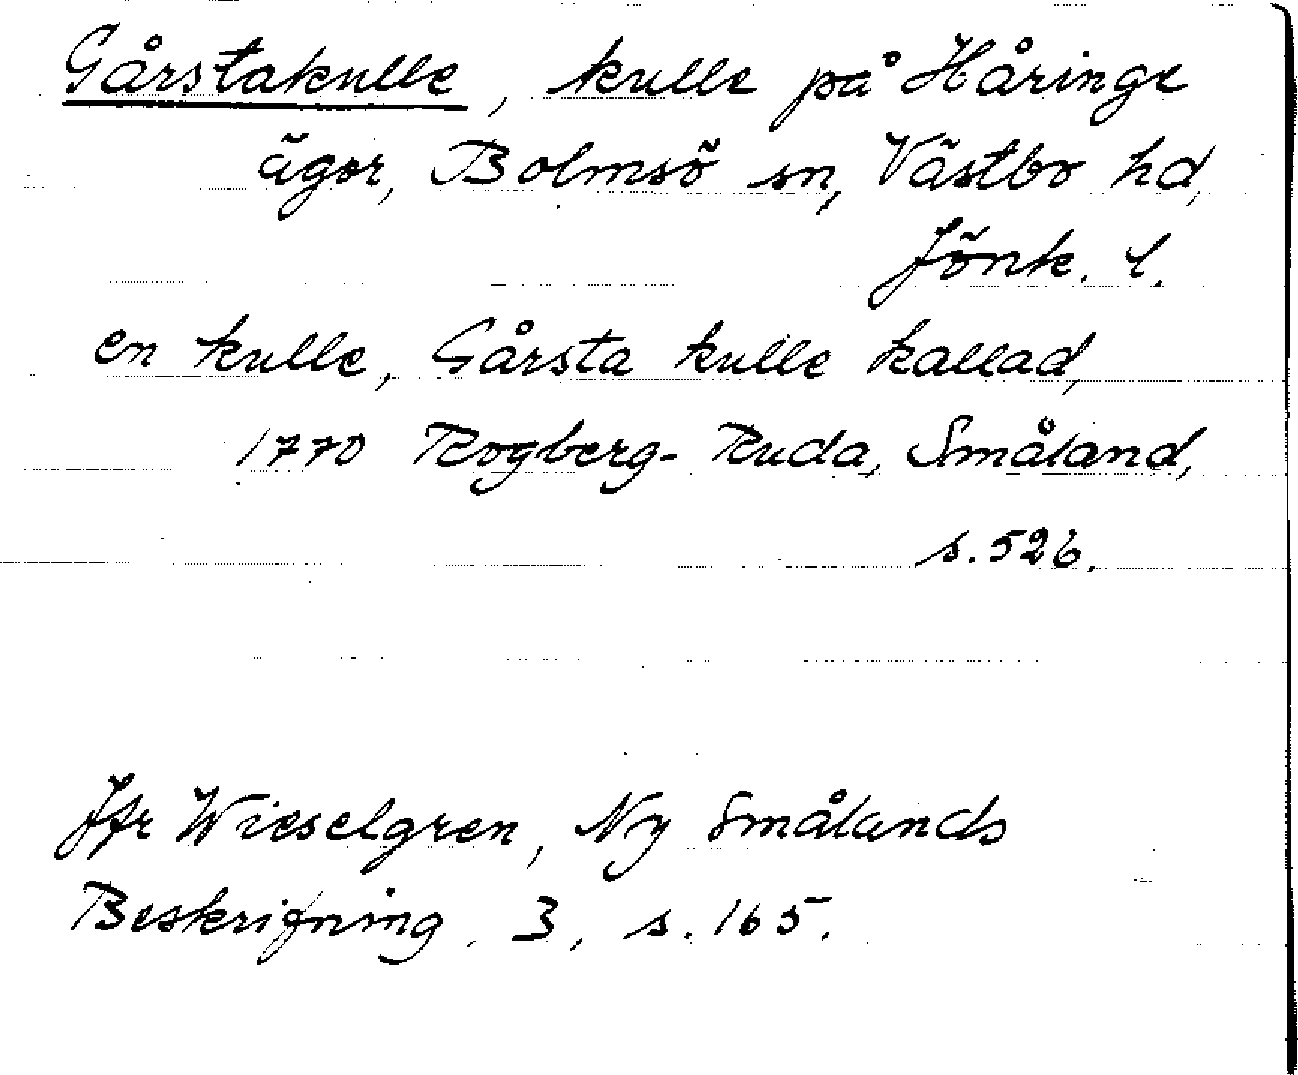 Gårstakulle, kulle på Håringe
ägor, Bolmsö sn, Västbo hd,
Jönk. l.
en kulle, Gårsta kulle kallad,
1770 Rogberg-Ruda, Småland,
s. 526.
Jfr Wieselgren, Ny Smålands
Beskrifning, 3, s. 165.